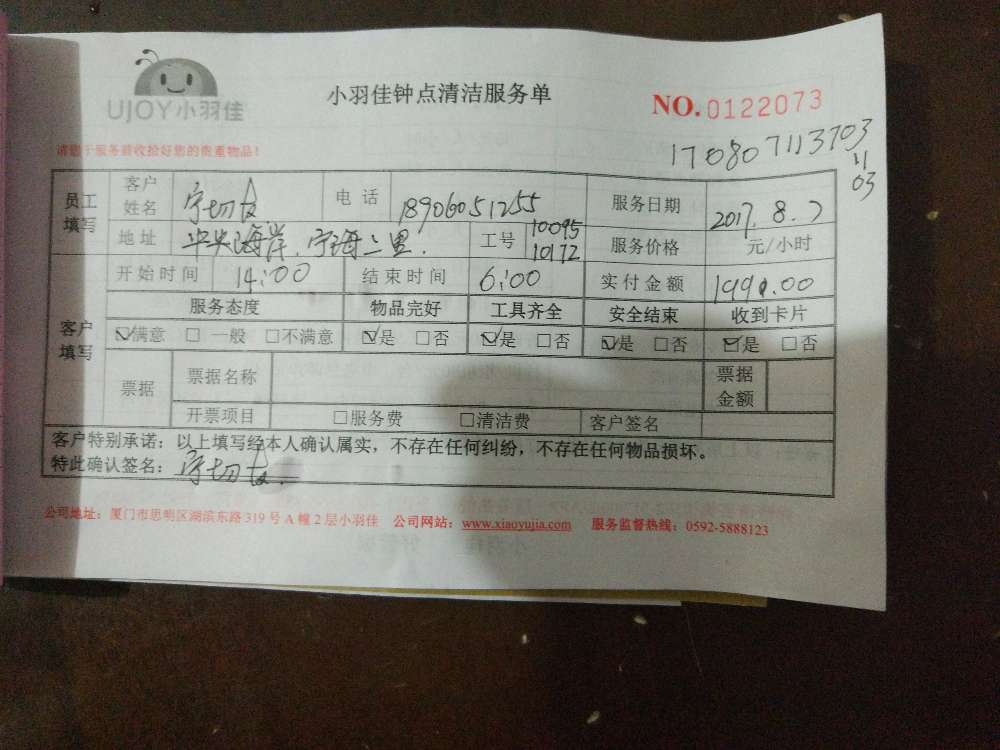 UJOY小羽佳
小羽佳钟点清洁服务单
NO.0122073
请您于服务前收捡好您的贵重物品!
170807113703
11
03
员工填写 客户姓名 电话 18906051255 服务日期 2017.8.7
地址 海岸.宁海二里. 工号 10095 10172 服务价格 元/小时
开始时间 14:00 结束时间 6:00 实付金额 199.00
客户填写 服务态度 物品完好 工具齐全 安全结束 收到卡片
☑满意 □一般 □不满意 ☑是 □否 ☑是 □否 ☑是 □否 ☑是 □否
票据 票据名称 票据金额
开票项目 □服务费 □清洁费 客户签名
客户特别承诺:以上填写经本人确认属实,不存在任何纠纷,不存在任何物品损坏。
特此确认签名:
公司地址:厦门市思明区湖滨东路319号A幢2层小羽佳 公司网站:www.xiaoyujia.com 服务监督热线:0592-5888123